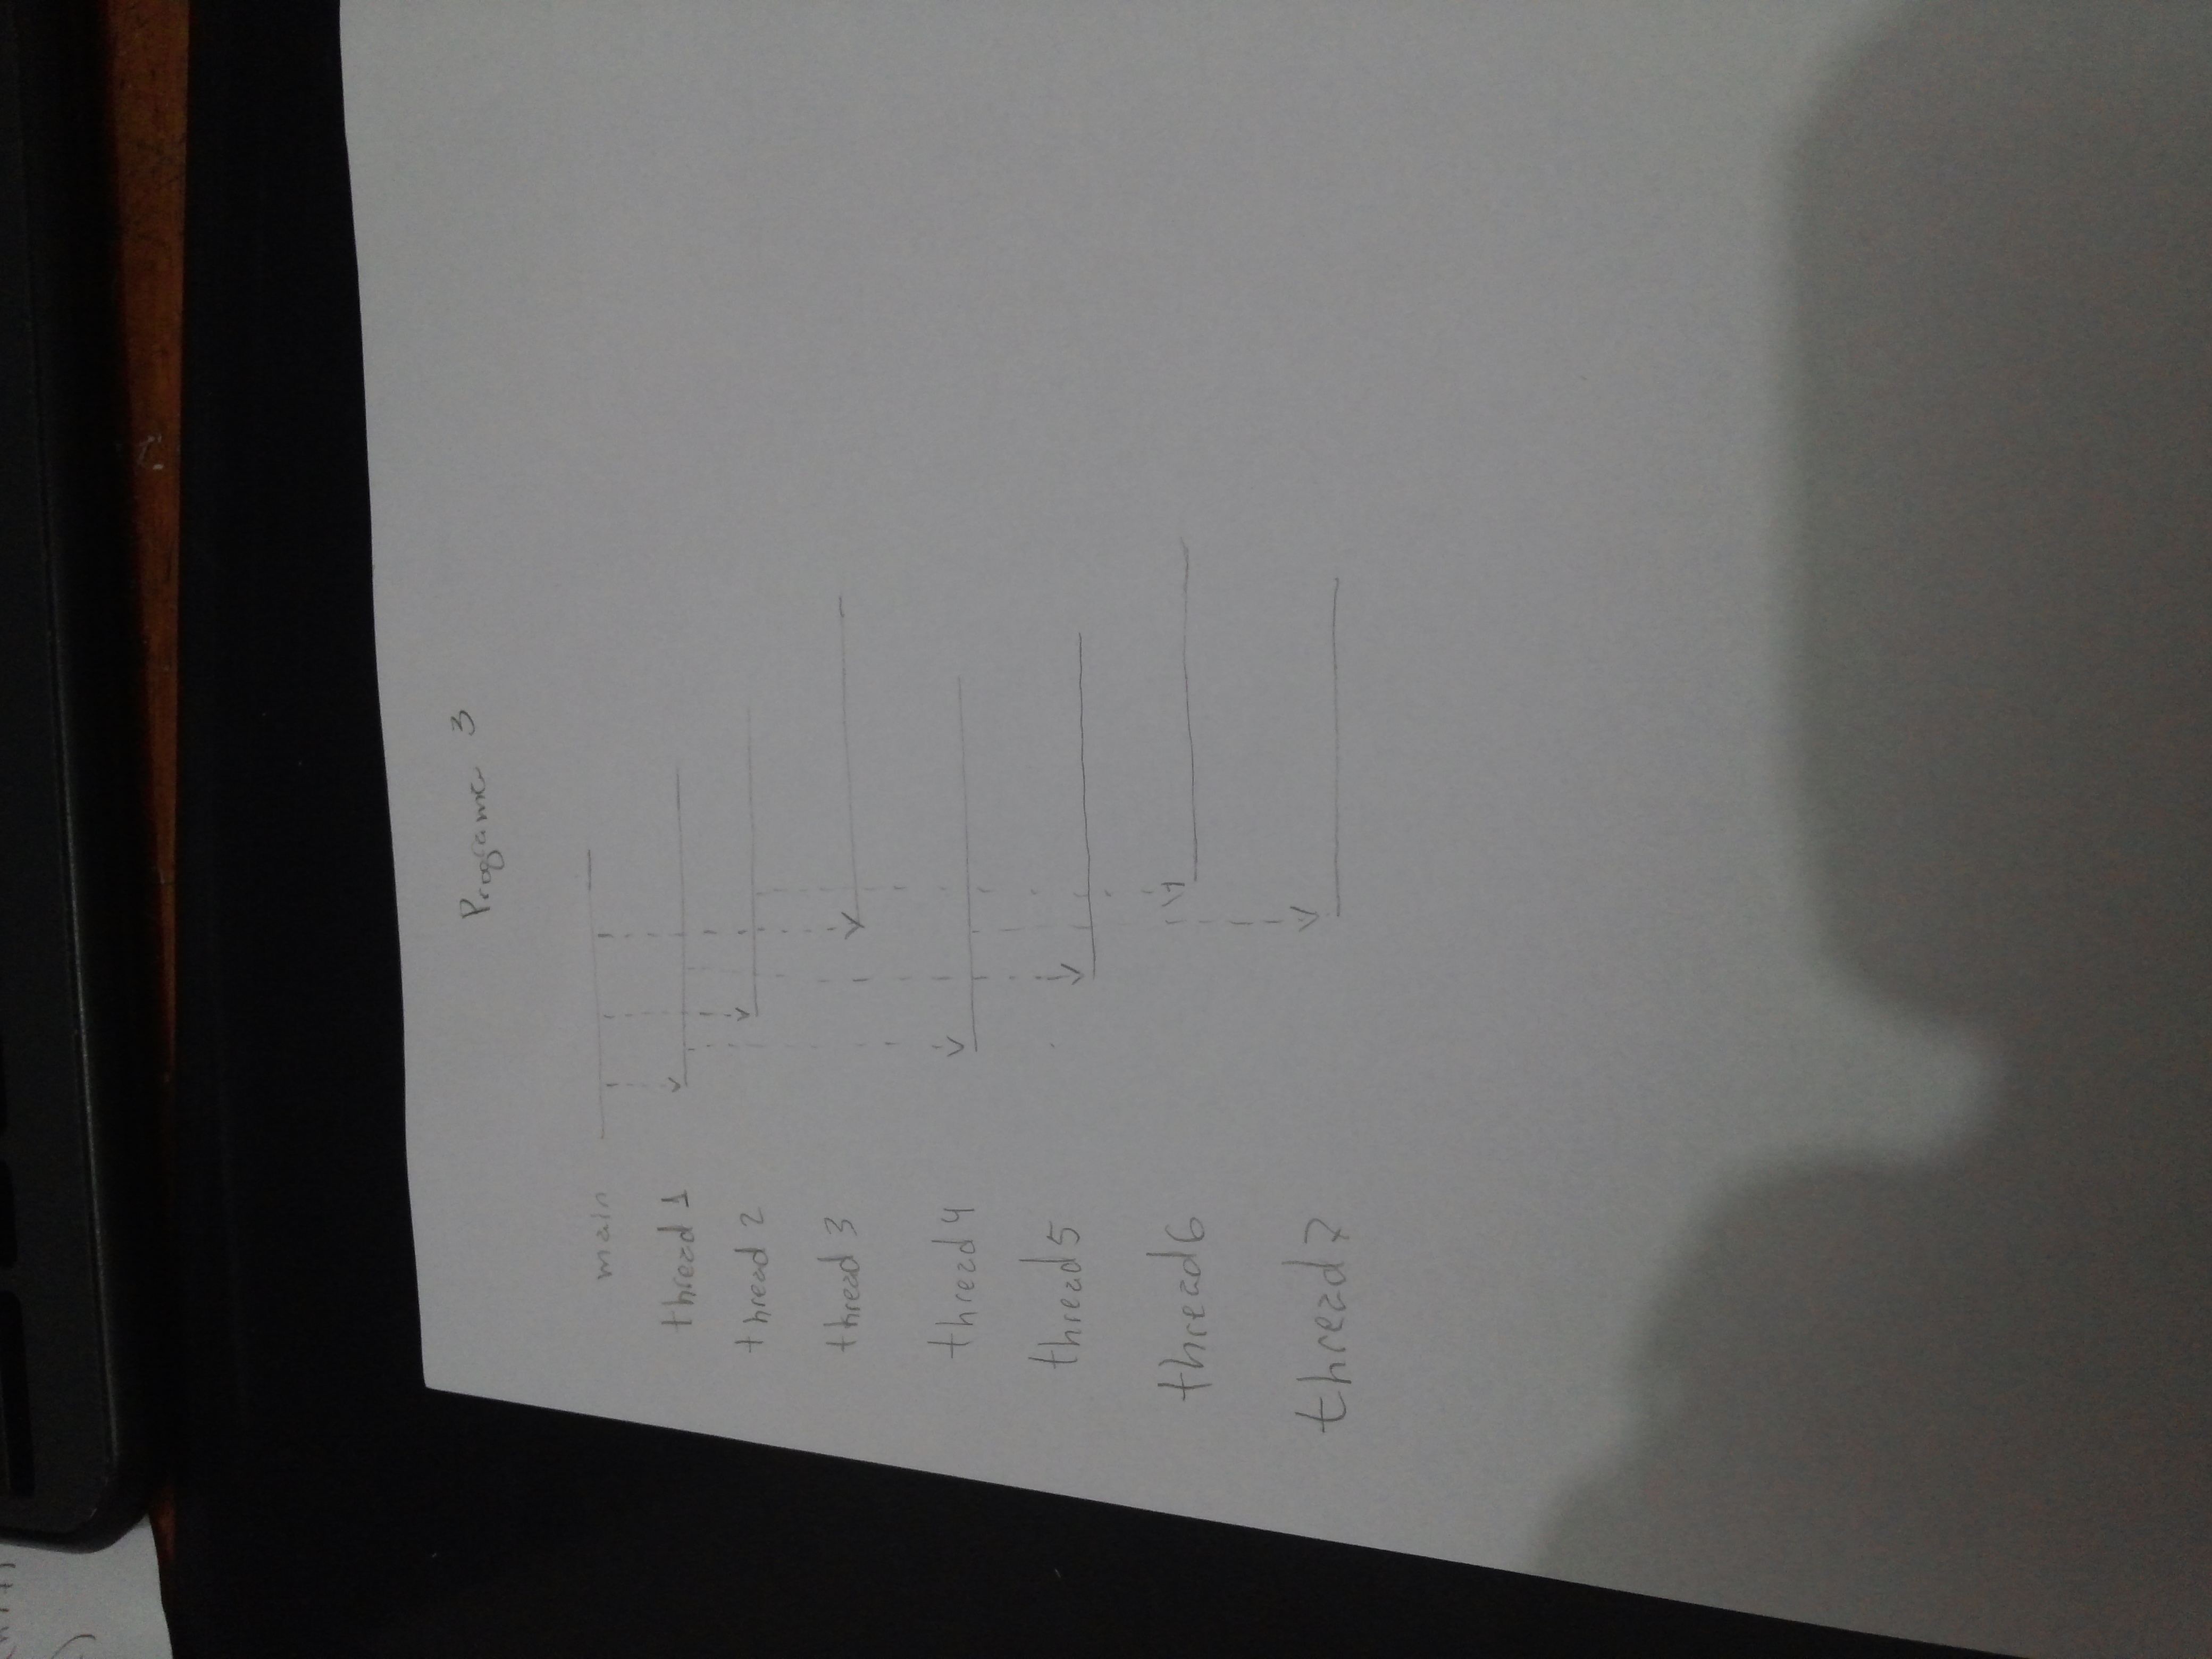 Programa 3
main
thread 1
thread 2
thread 3
thread 4
thread 5
thread 6
thread 7